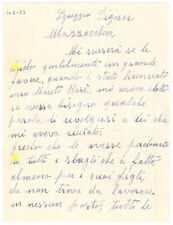 Egreggio Signor
Mazzacchua
Mi scuserà se le
chido gentilmente un grande
favore, quando è stato licenziato
mio Marito Mori, mi aveva detto
se avesse bisogno qualche
parola di rivolgersi a lei che
mi aveva aiutato,
che le avesse perdonato
tutti i sbagli che à fatto
almeno per i suoi figli
che non trova da lavorare
in nessun posto, tutti le